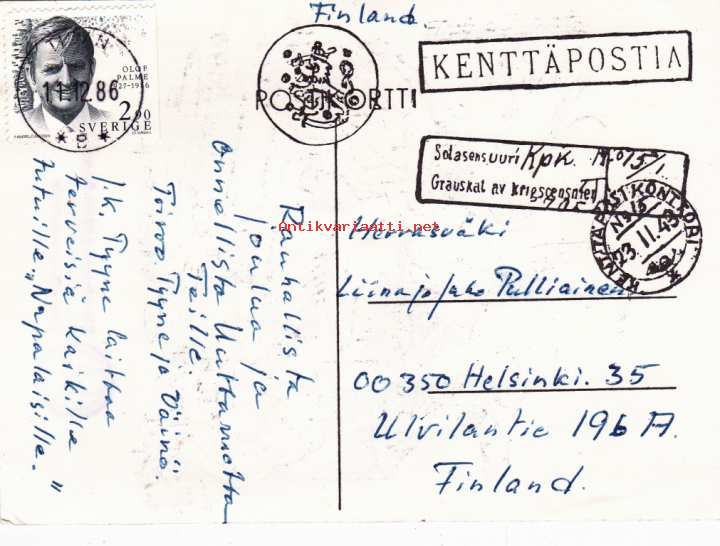 Finland.
OLOF
PALME
1927-1986
11.12.86
2.90
SVERIGE
POSTIKORTTI
KENTTÄPOSTIA
Sotasensuuri Kpk.
Granskat av krigscensuren
KENTTÄPOSTIKONTTORI
No 16
23.11.43
Antikvariaatti.net
Rauhallista
Joulua ja
Onnellista Uuttavuotta
Teille.
Toivoo. Tyyne ja Väinö.
J.K. Tyyne laittaa
terveisiä kaikille
tutuille "Napalaisille."
Herrasväki
Liina ja Jako Pulliainen
00350 Helsinki. 35
Ulvilantie 19b A.
Finland.